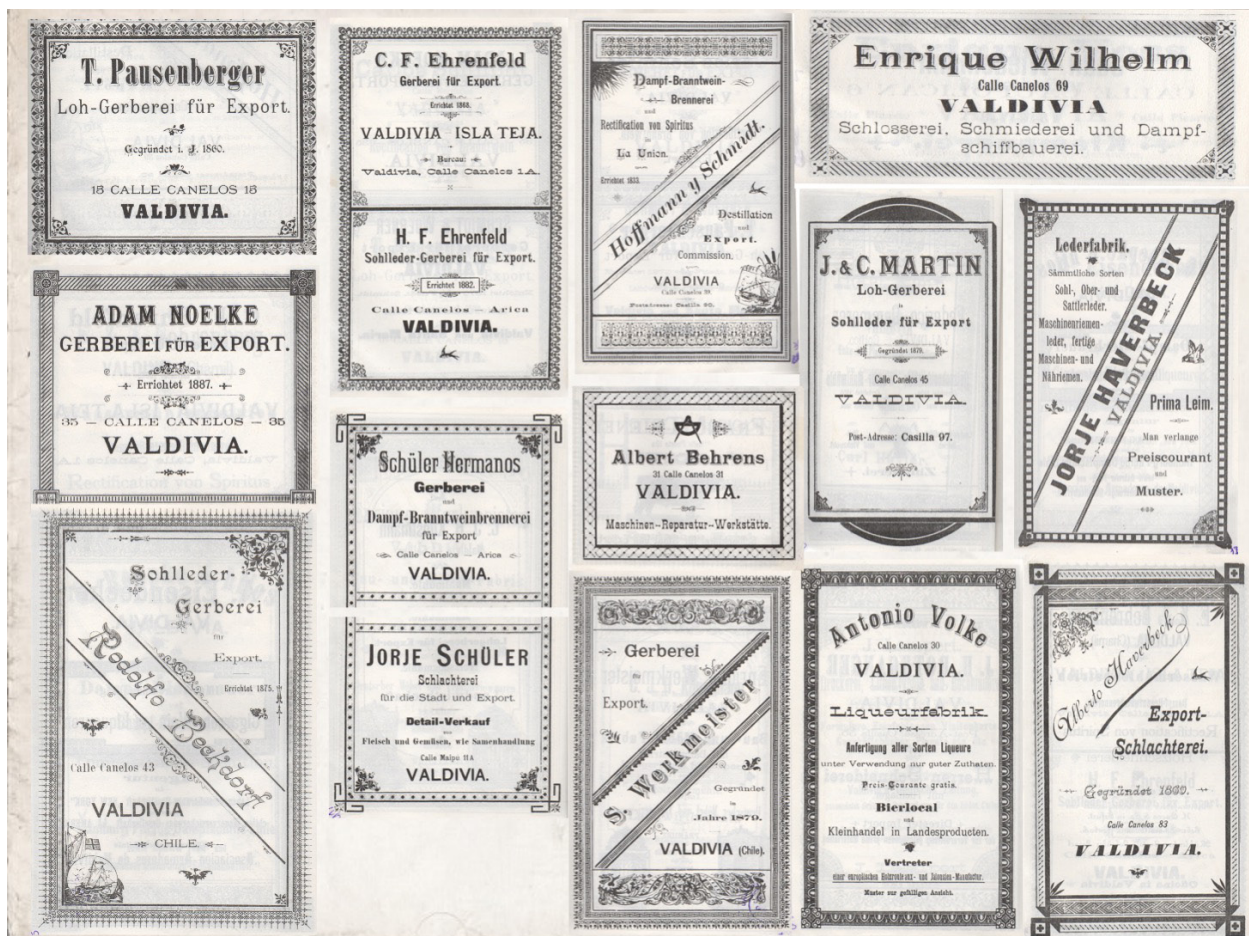 T. Pausenberger
Loh-Gerberei für Export.
Gegründet i. J. 1860.
18 CALLE CANELOS 18
VALDIVIA.
ADAM NOELKE
GERBEREI FÜR EXPORT.
Errichtet 1887.
35 – CALLE CANELOS – 35
VALDIVIA.
Sohlleder-
Gerberei
für
Export.
Errichtet 1875.
Rodolfo Beckdorf
Calle Canelos 43
VALDIVIA
CHILE.
C. F. Ehrenfeld
Gerberei für Export.
Errichtet 1868.
VALDIVIA – ISLA TEJA.
Bureau:
Valdivia, Calle Canelos 1 A.
H. F. Ehrenfeld
Sohlleder-Gerberei für Export.
Errichtet 1882.
Calle Canelos — Arica
VALDIVIA.
Schüler Hermanos
Gerberei
und
Dampf-Branntweinbrennerei
für Export
Calle Canelos — Arica
VALDIVIA.
JORJE SCHÜLER
Schlachterei
für die Stadt und Export.
Detail-Verkauf
von
Fleisch und Gemüsen, wie Samenhandlung
Calle Maipu 11A
VALDIVIA.
Dampf-Branntwein-
Brennerei
und
Rectification von Spiritus
in
La Union.
Errichtet 1853.
Hoffmann y Schmidt.
Destillation
und
Export.
Commission.
VALDIVIA
Calle Canelos 39.
Postadresse: Casilla 90.
Albert Behrens
31 Calle Canelos 31
VALDIVIA.
Maschinen-Reparatur-Werkstätte.
Gerberei
für
Export.
S. Werkmeister
Gegründet
im
Jahre 1879.
VALDIVIA (Chile).
Enrique Wilhelm
Calle Canelos 69
VALDIVIA
Schlosserei, Schmiederei und Dampf-
schiffbauerei.
J. & C. MARTIN
Loh-Gerberei
Sohlleder für Export
Gegründet 1879.
Calle Canelos 45
VALDIVIA.
Post-Adresse: Casilla 97.
Lederfabrik.
Sämmtliche Sorten
Sohl-, Ober- und
Sattlerleder.
Maschinenriemen-
leder, fertige
Maschinen- und
Nähriemen.
JORJE HAVERBECK
VALDIVIA.
Prima Leim.
Man verlange
Preiscourant
und
Muster.
Antonio Volke
Calle Canelos 30
VALDIVIA.
Liqueurfabrik.
Anfertigung aller Sorten Liqueure
unter Verwendung nur guter Zuthaten.
Preis-Courante gratis.
Bierlocal
und
Kleinhandel in Landesproducten.
Vertreter
einer europäischen Holzrouleaux- und Jalousien-Manufactur.
Muster zur gefälligen Ansicht.
Alberto Haverbeck
Export-
Schlachterei.
Gegründet 1869.
Calle Canelos 83
VALDIVIA.